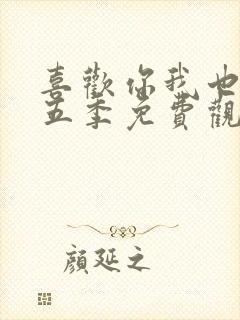 喜歡你我也
五季免費觀
顏延之